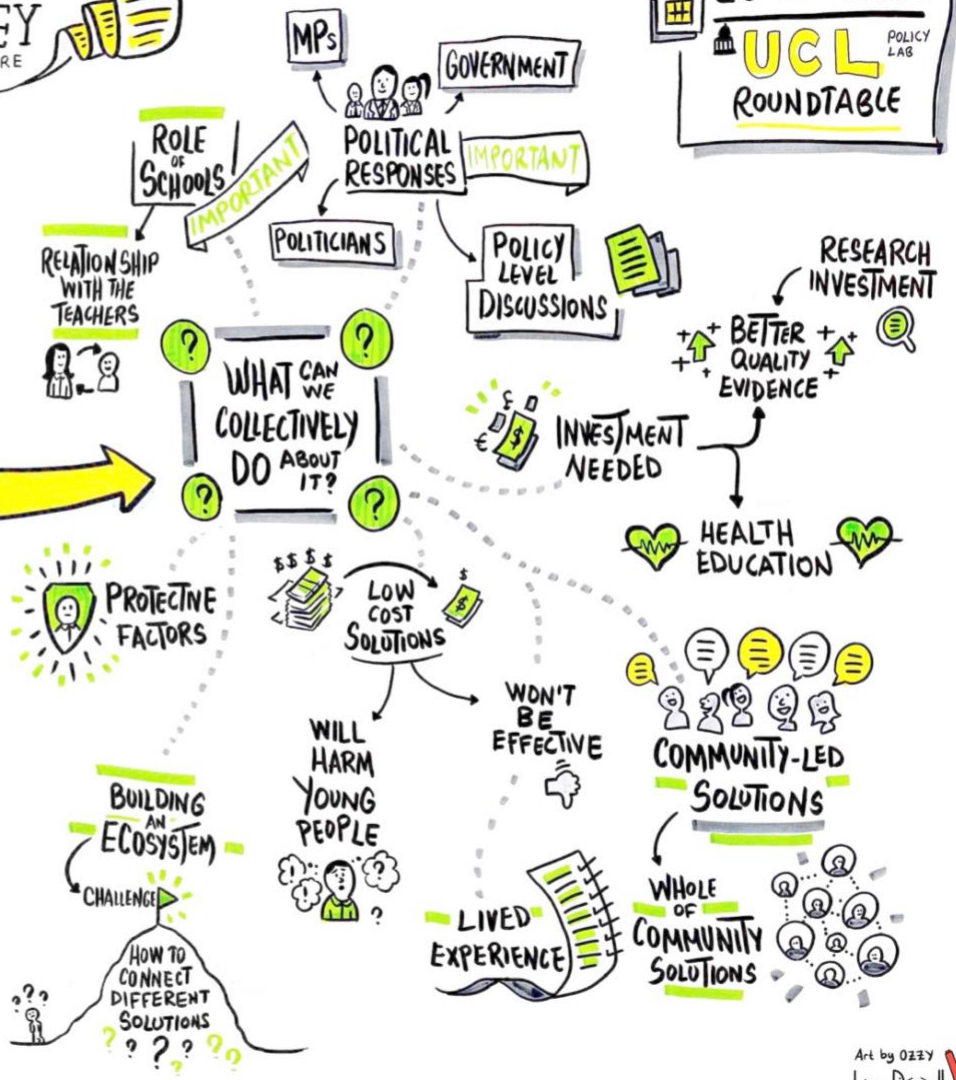 EY
RE
UCL
POLICY
LAB
ROUNDTABLE
MPs
GOVERNMENT
POLITICAL
RESPONSES
IMPORTANT
POLITICIANS
POLICY
LEVEL
DISCUSSIONS
ROLE
OF
SCHOOLS
IMPORTANT
RELATIONSHIP
WITH THE
TEACHERS
RESEARCH
INVESTMENT
BETTER
QUALITY
EVIDENCE
? ?
WHAT CAN
WE
COLLECTIVELY
DO ABOUT
IT?
? ?
£
€ $
INVESTMENT
NEEDED
HEALTH
EDUCATION
PROTECTIVE
FACTORS
$$$$
LOW
COST
SOLUTIONS
$
$
WILL
HARM
YOUNG
PEOPLE
? ! ! ? ?
WON'T
BE
EFFECTIVE
COMMUNITY-LED
SOLUTIONS
BUILDING
AN
ECOSYSTEM
CHALLENGE
HOW TO
CONNECT
DIFFERENT
SOLUTIONS
???
? ? ? ? ? ? ?
LIVED
EXPERIENCE
WHOLE
OF
COMMUNITY
SOLUTIONS
Art by OZZY